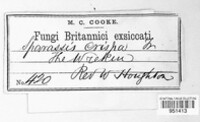 M. C. COOKE.
Fungi Britannici exsiccati.
Sparassis crispa Fr
The Wrekin
No. 420 Rev W Houghton
951413